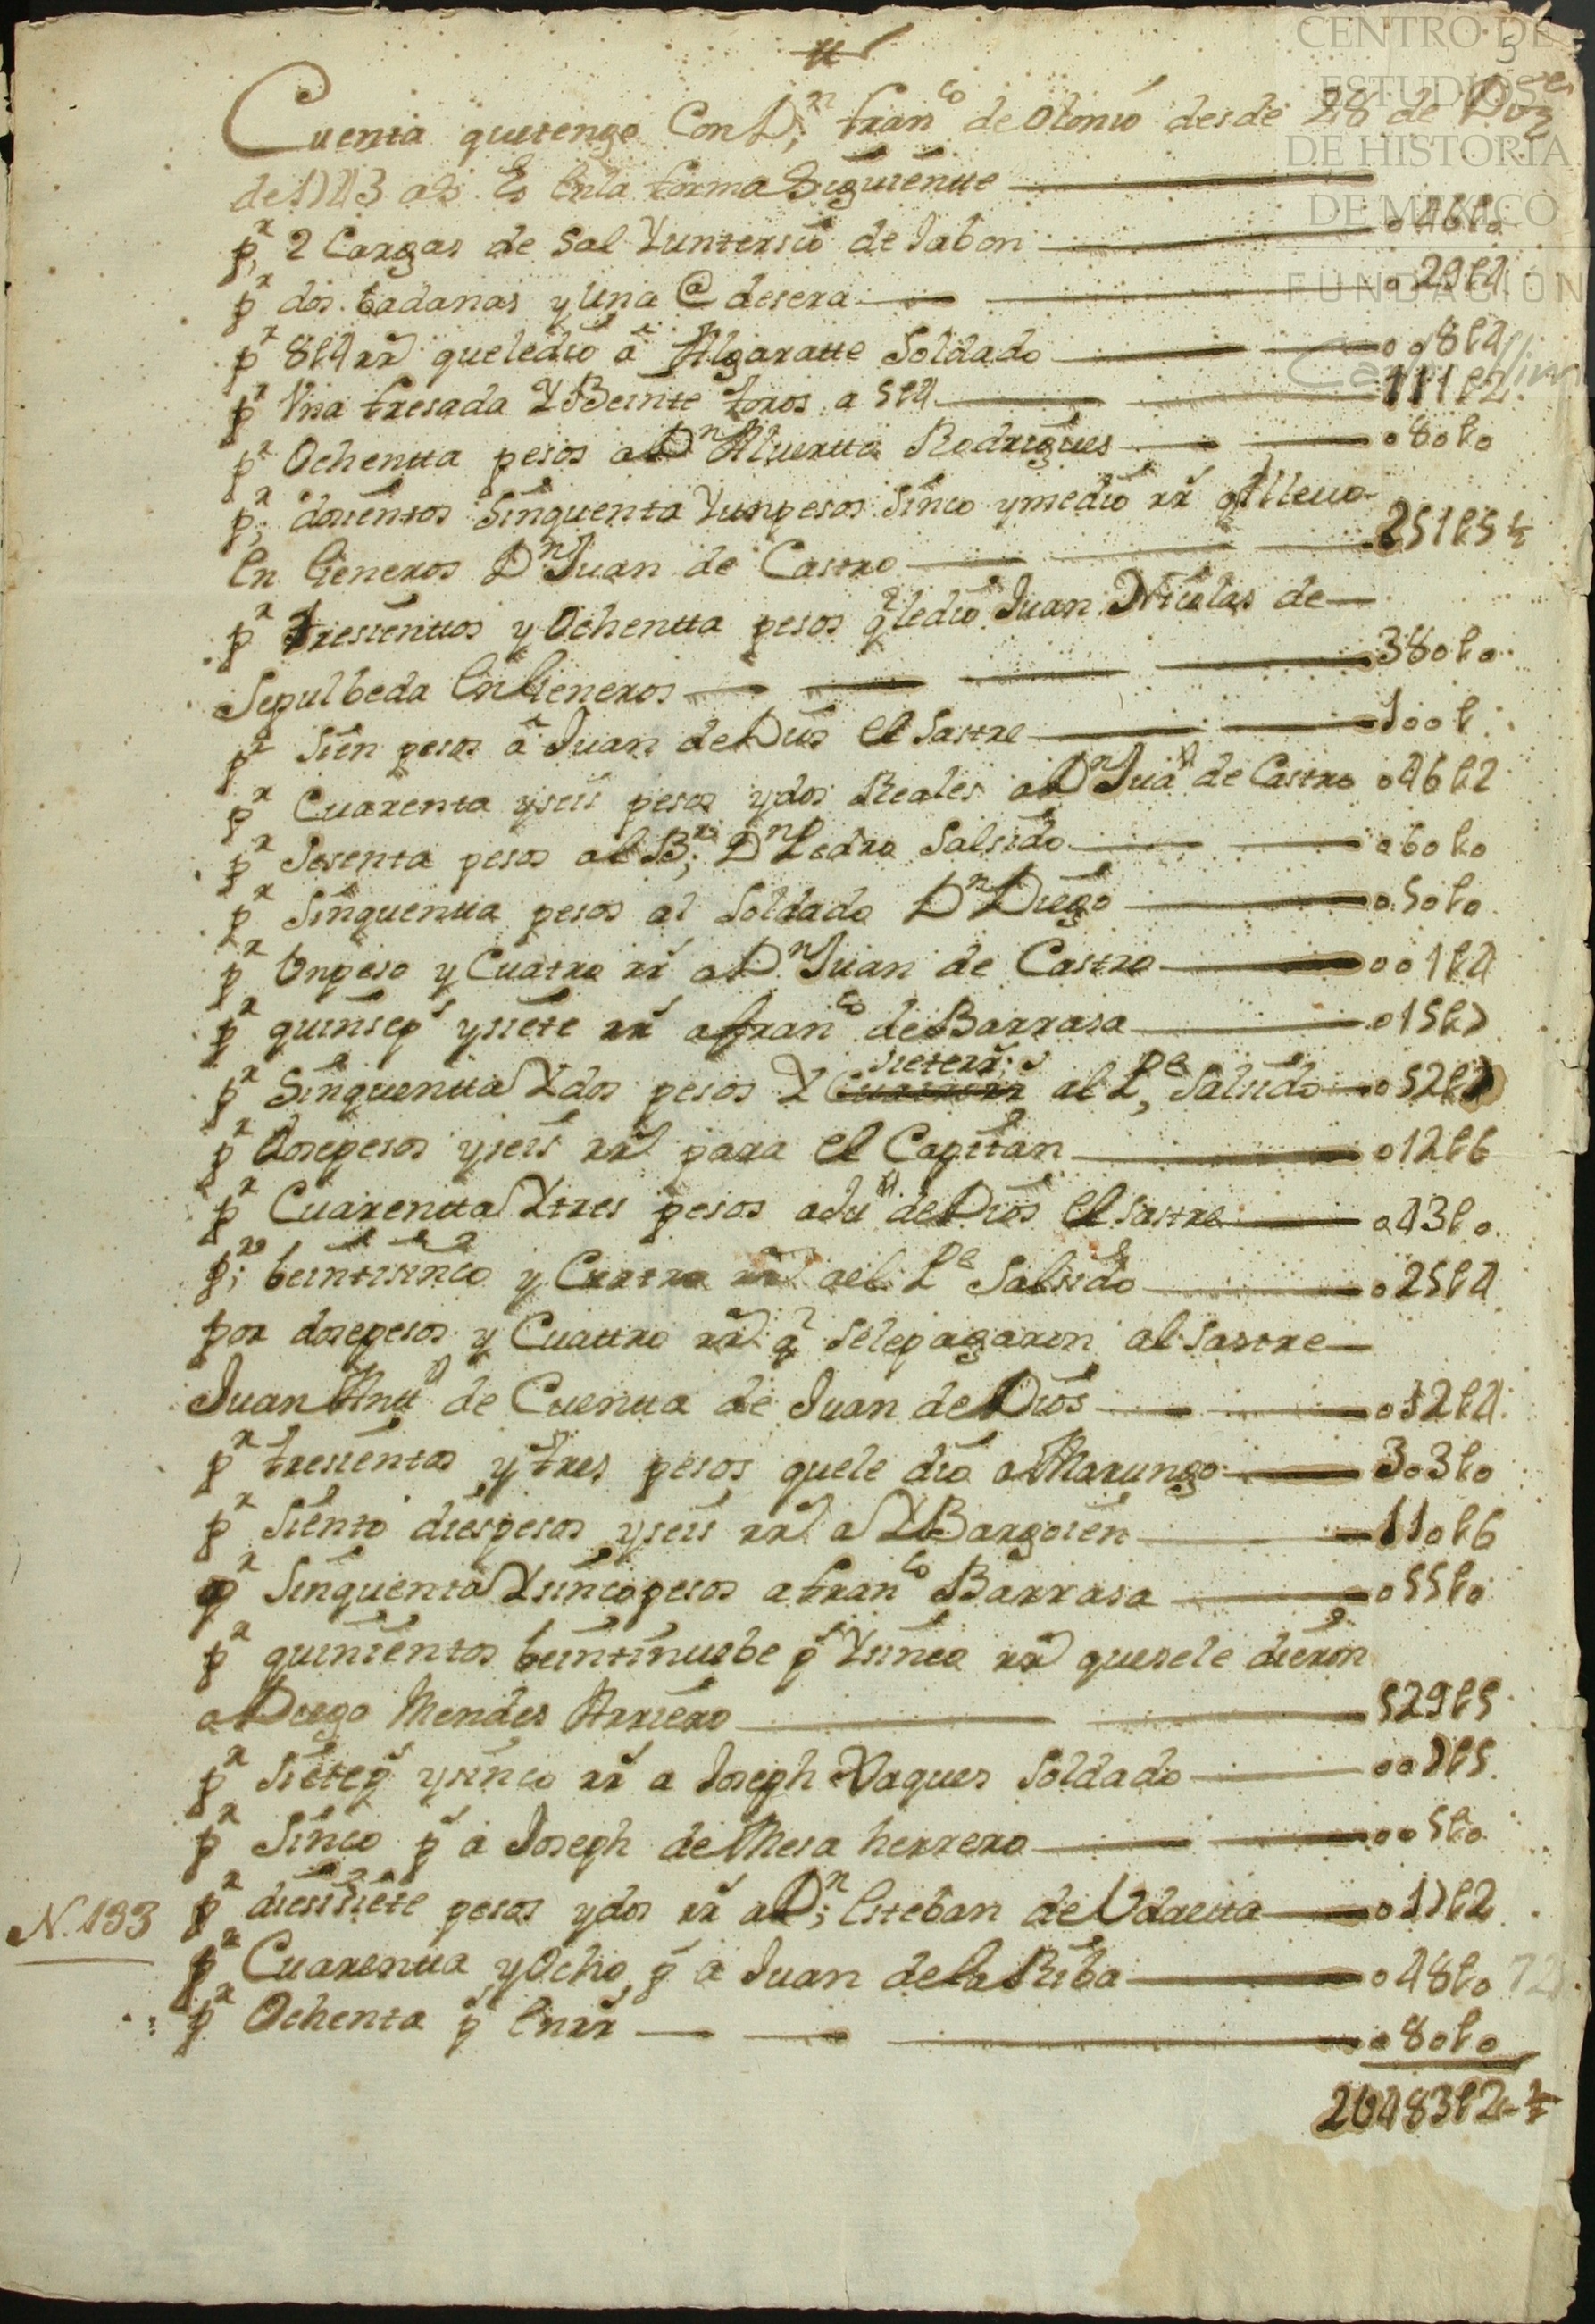 CENTRO DE
ESTUDIOS
DE HISTORIA
DE MÉXICO
FUNDACIÓN
5
Cuenta quetengo Con Dn, franco de Olonio desde 28 de
de 1743 as. Es Enla forma Siguiente
pr 2 Cargas de Sal Yuntersio de Jabon 046l0
pr dos badanas y Una @ desera 029l4
pr 8l4 rrs queledio a Algaratte Soldado 008l4
pr Una fresada Y Beinte toros a 5l4 111l2
pr Ochentta pesos a Dn Rodrigues 080l0
pr dosientos Sinquenta Yunpesos Sinco ymedio rrs q lleuo
En Generos Dn Juan de Castro 251l5½
pr tresienttos y Ochentta pesos q ledio Juan Nicolas de
Sepulbeda En Generos 380l0
pr Sien pesos a Juan de Dios El Sastre 100l
pr Cuarenta yseis pesos ydos Reales a Dn Juan de Castro 046l2
pr Sesenta pesos al Br; Dn Pedro Salsido 060l0
pr Sinquentta pesos al Soldado Dn Diego 050l0
pr Unpeso y Cuatro rrs a Dn Juan de Castro 001l4
pr quinseps ysiete rrs afranco de Barrasa 015l7
pr Sinquentta Ydos pesos Y sieterrs al Pe Salsido 052l7
pr dosepesos yseis rrs para El Capitan 012l6
pr Cuarentta Ytres pesos aJun de Dios El Sastre 043l0
pr; beintisinco y Cuatro rrs ael Pe Salsido 025l4
por dosepesos y Cuattro rrs q Selepagaron al Sastre
Juan Antto de Cuentta de Juan de Dios 012l4
pr tresientos ytres pesos quele dio a Marungo 303l0
pr Siento diespesos yseis rrs a YBargoien 110l6
pr Sinquenta Ysincopesos a franco Barrasa 055l0
pr quinientos beintinuebe ps Ysinco rrs quesele dieron
a Diego Mendes Arriero 529l5
pr Sieteps ysinco rrs a Joseph Vaques Soldado 007l5
pr Sinco ps a Joseph de Mesa herrero 005l0
N. 133
pr diesisiete pesos ydos rrs a Dn; Esteban de Udaetta 017l2
pr Cuarentta yOcho ps a Juan dela Riba 048l0
pr Ochenta ps Enrrs 080l0